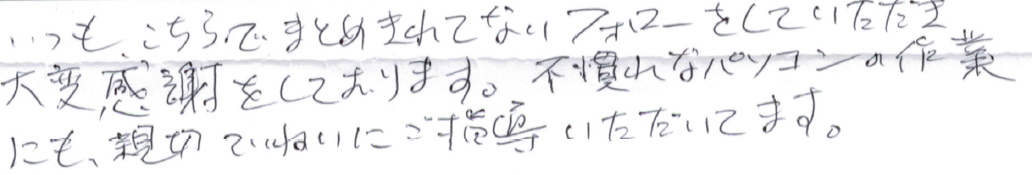 いつも、こちらでまとめきれてないフォローをしていただき
大変感謝をしております。不慣れなパソコンの作業
にも、親切ていねいにご指導いただいてます。